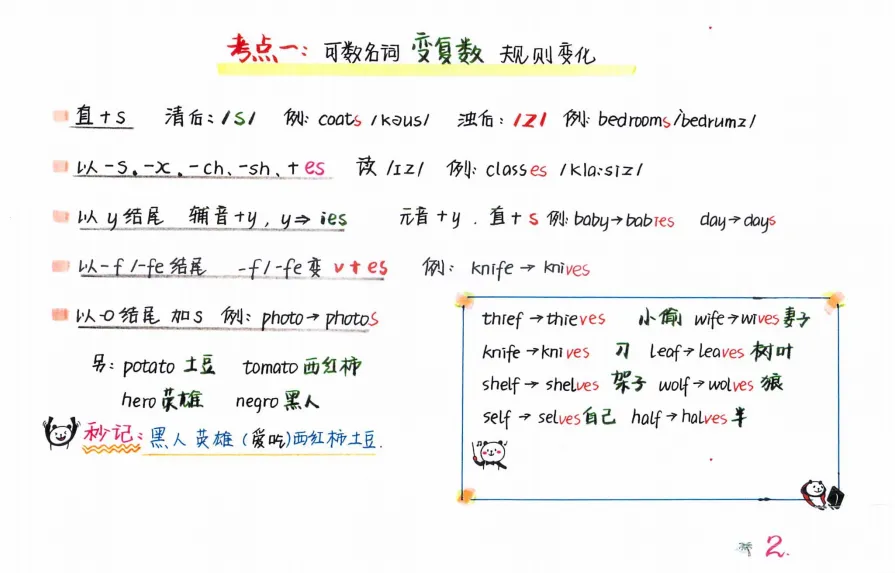 考点一：可数名词 变复数 规则变化
直+s 清后：/s/ 例：coats /kəus/ 浊后：/z/ 例：bedrooms /bedrumz/
以-s、-x、-ch、-sh、+es 读 /ɪz/ 例：classes /kla:sɪz/
以y结尾 辅音+y，y⇒ies 元音+y．直+s 例：baby→babies day→days
以-f/-fe结尾 -f/-fe变v+es 例：knife→knives
以-o结尾 加s 例：photo→photos
另：potato 土豆 tomato 西红柿
hero 英雄 negro 黑人
秒记：黑人英雄(爱吃)西红柿土豆．
thief→thieves 小偷 wife→wives 妻子
knife→knives 刀 leaf→leaves 树叶
shelf→shelves 架子 wolf→wolves 狼
self→selves 自己 half→halves 半
2.